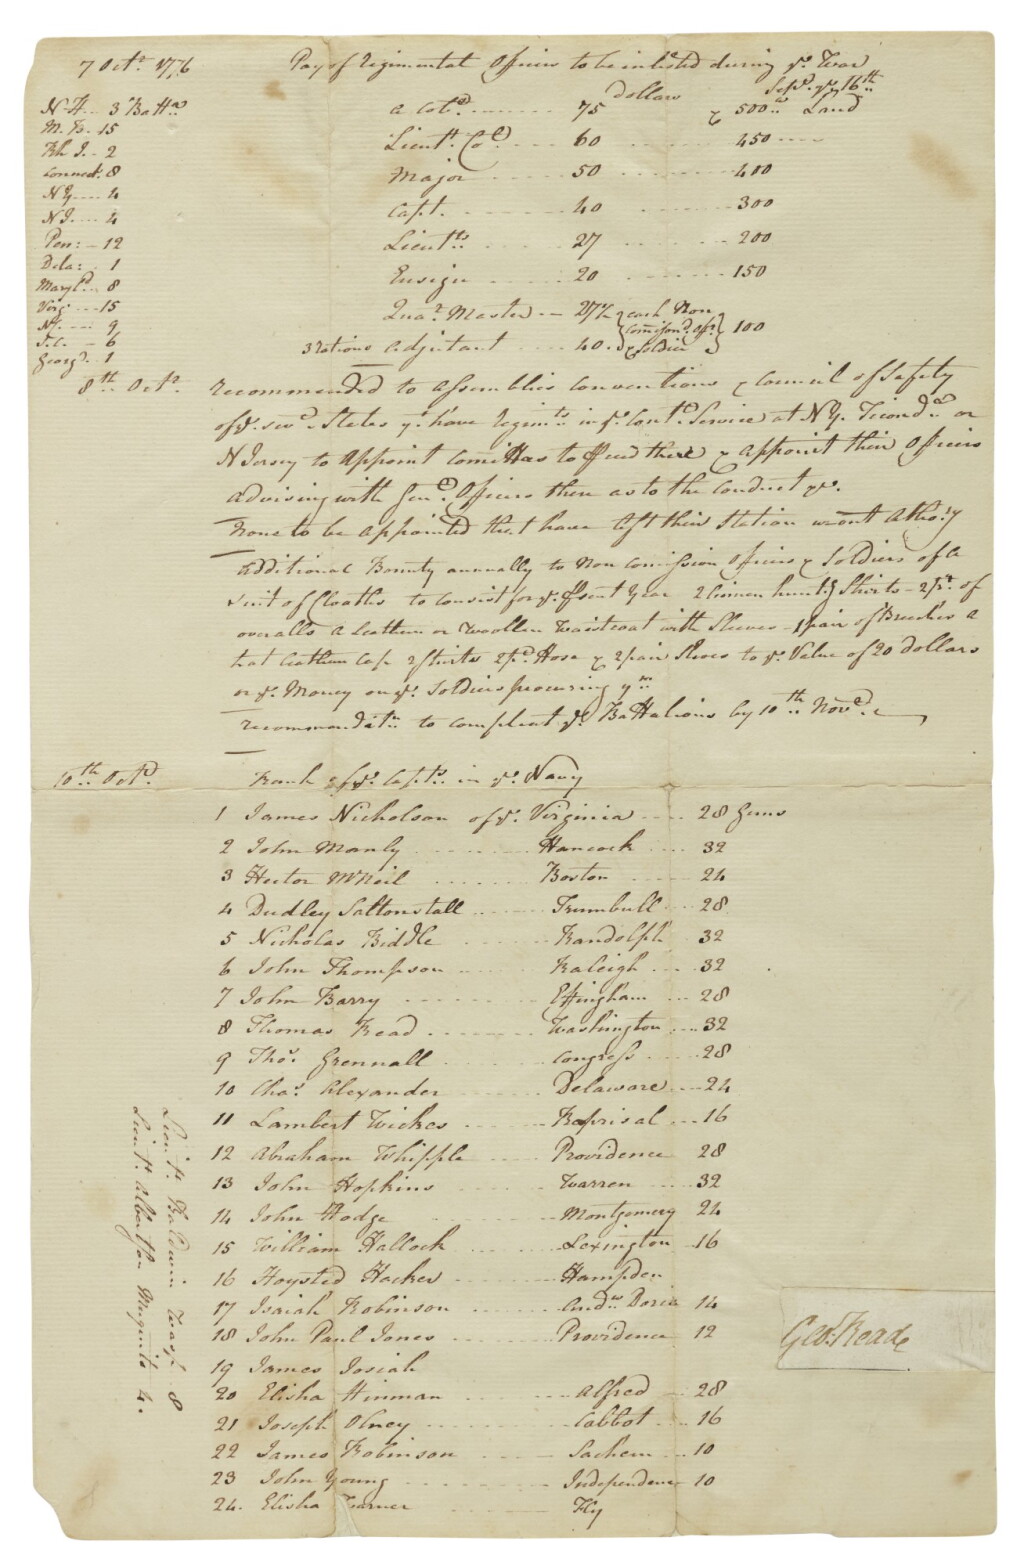 7 Octr. 1776 Pay of Regimental Officers to be inlisted during ye. War
dollars Sepr. ye. 16th
N. H... 3 Battns a Colo. 75 & 500 as Land
M. B. 15
Rh I.. 2 Lieutt. Colo. 60 450
Connect. 8 Major 50 400
N Y 4
N J. 4 Capt. 40 300
Pen: 12 Lieutts 27 200
Dela: 1
Maryld. 8 Ensign 20 150
Virg. 15 Quar. Master 27½ each Non
N. 9 Comisond. Offr. 100
S.C. 6 3 Rations adjutant 40. & Soldier
Georg. 1
8th Octr. recommended to assemblies conventions & Council of Safety
of ye. sevl. States yt. have regimts in ye. Contl. Service at N Y. Ticondra or
N Jersey to appoint Comittas to there & appoint their Officers
advising with Genl. Officers there as to the conduct &c.
None to be appointed that have left their Station without
additional Bounty annually to Non Comission Officers & Soldiers of a
suit of Cloaths to consist for ye. psent Year 2 linnen huntg Shirts - 2 pr. of
overalls a leathern or woollen waistcoat with Sleeves - 1 pair of Breeches a
hat leathern Cap 2 shirts 2 pr. Hose & 2 pair Shoes to ye. Value of 20 dollars
or ye. Money on ye. Soldiers procuring ym
recommendatn. to compleat ye. Battalions by 10th Novr.
10th Octr. Rank of ye. Capts. in ye. Navy
1 James Nicholson of ye. Virginia 28 Guns
2 John Manly Hancock 32
3 Hector McNeil Boston 24
4 Dudley Saltonstall Trumbull 28
5 Nicholas Biddle Randolph 32
6 John Thompson Raleigh 32
7 John Barry Effingham 28
8 Thomas Read Washington 32
9 Thos. Grennall Congress 28
10 Chas. Alexander Delaware 24
11 Lambert Wickes Reprisal 16
12 Abraham Whipple Providence 28
13 John Hopkins Warren 32
14 John Hodge Montgomery 24
15 William Hallock Lexington 16
16 Hoysted Hacker Hampden
17 Isaiah Robinson Andw. Doria 14
18 John Paul Jones Providence 12
19 James Josiah
20 Elisha Hinman Alfred 28
21 Joseph Olney Cabbot 16
22 James Robinson Sachem 10
23 John Young Independence 10
24. Elisha Warner Fly
Lieutt. Baldwin Wasp 8
Lieutt. Albertson Musquito 4.
Geo: Read